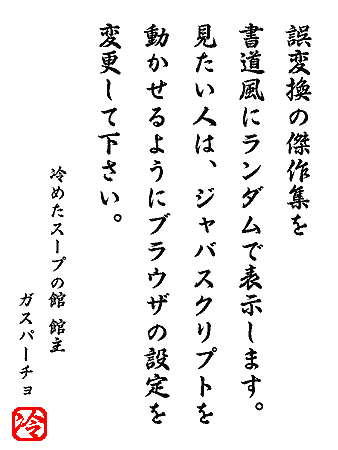 誤変換の傑作集を
書道風にランダムで表示します。
見たい人は、ジャバスクリプトを
動かせるようにブラウザの設定を
変更して下さい。
冷めたスープの館 館主
ガスパーチョ
冷